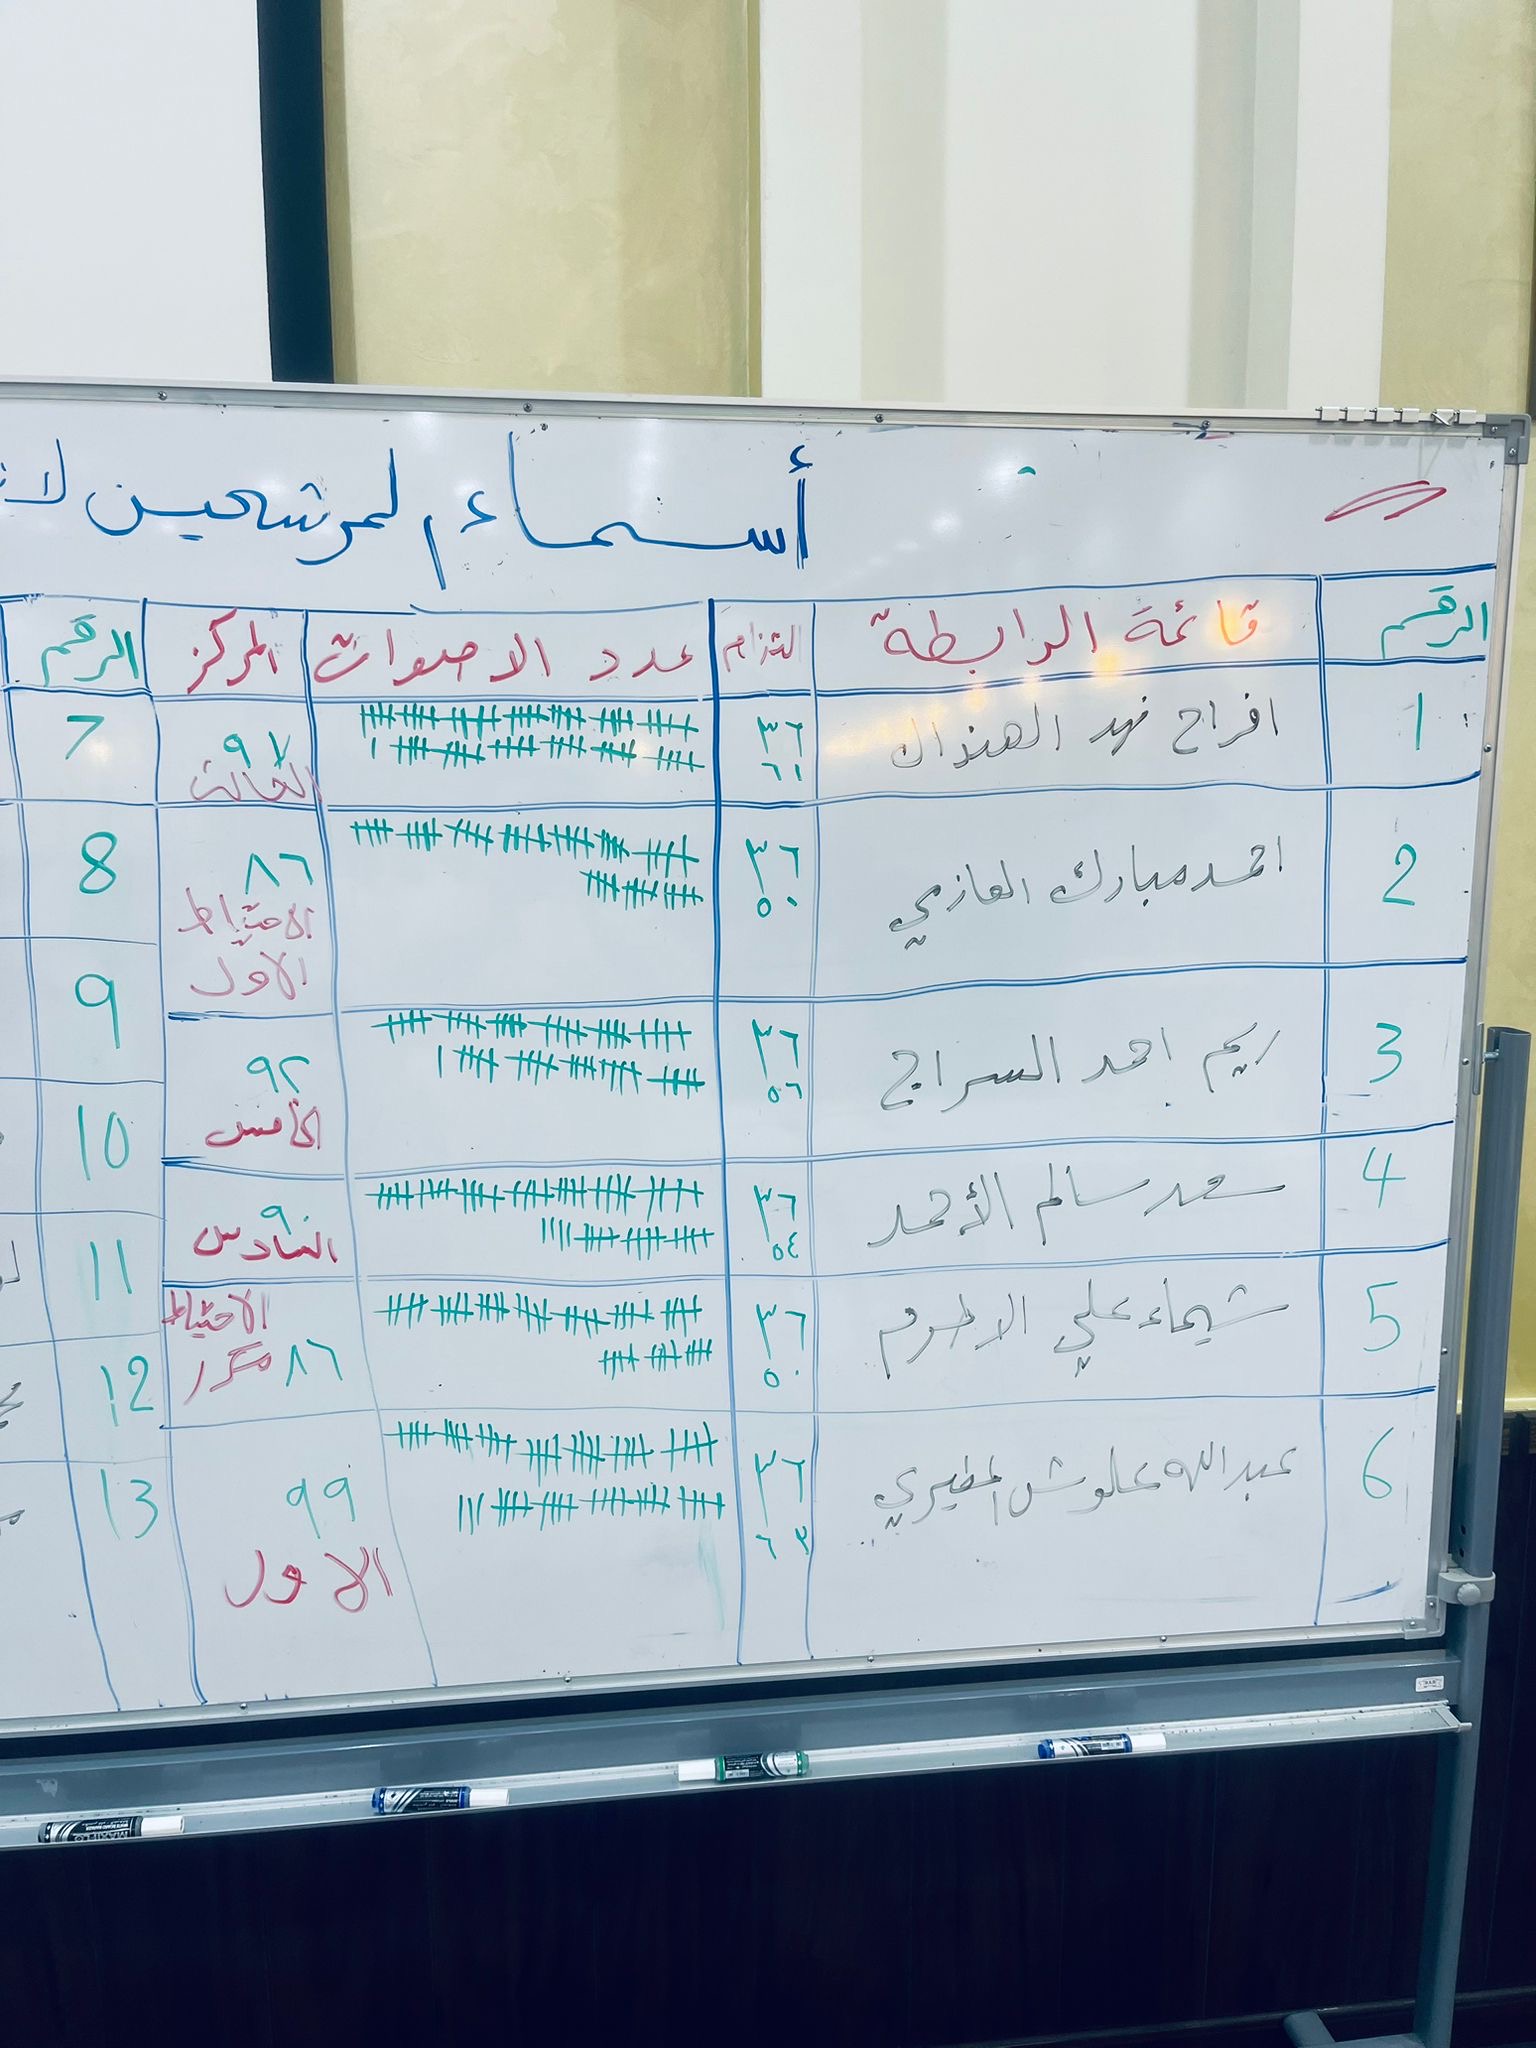 أسماء المرشحين
الرقم قائمة الرابطة التزام عدد الاصوات المركز الرقم
1 افراح فهد الهندال ٣٦ ٦١ ٩٧ الثالث 7
2 احمد مبارك العازمي ٣٦ ٥٠ ٨٦ الاحتياط الاول 8
3 ريم احمد السراج ٣٦ ٥٦ ٩٢ الخامس 9
4 سعد سالم الأحمد ٣٦ ٥٤ ٩٠ السادس 10
5 شيماء علي الاطرم ٣٦ ٥٠ الاحتياط ٨٦ مكرر 11
6 عبدالله علوش المطيري ٣٦ ٦٣ ٩٩ الاول 12
13